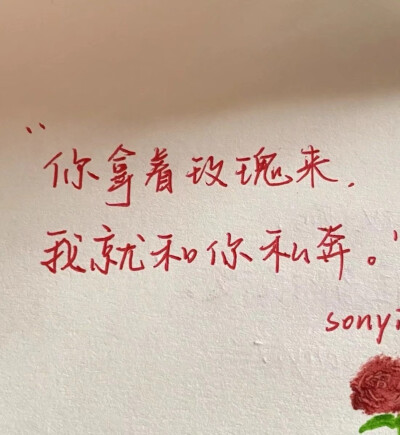 “你拿着玫瑰来，
我就和你私奔。”